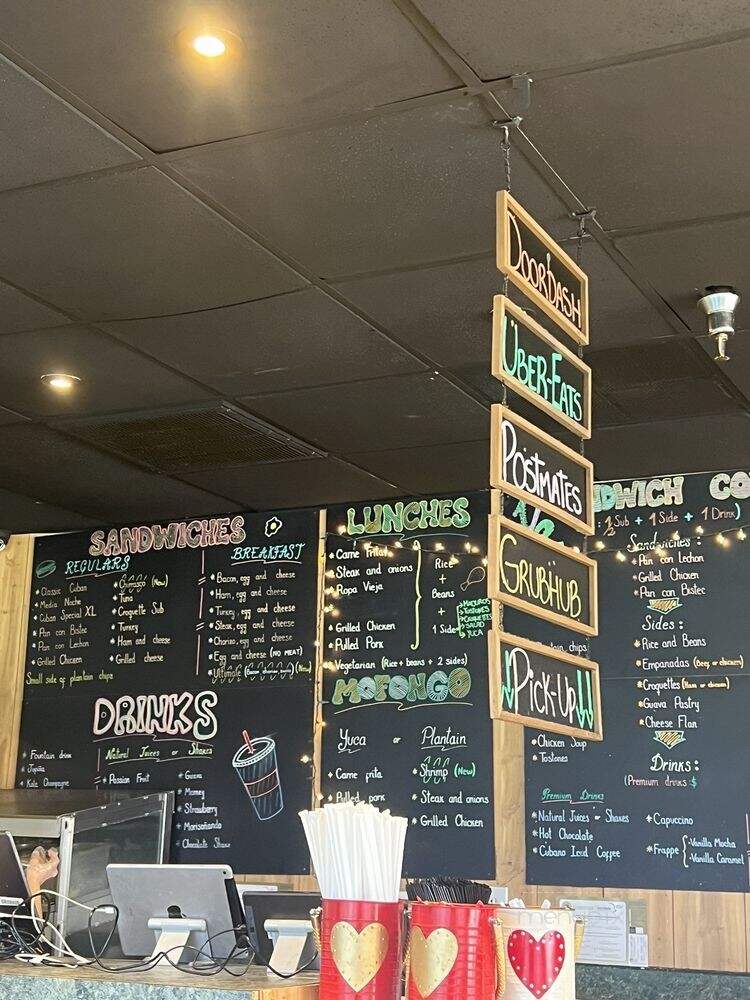 DOORDASH
ÜBER-EATS
POSTMATES
GRUBHUB
PICK-UP
SANDWICHES
REGULARS
* Classic Cuban
* Media Noche
* Cuban Special XL
* Pan con Bistec
* Pan con Lechon
* Grilled Chicken
Small side of plantain chips
(New)
* Tuna
* Croquette Sub
* Turkey
* Ham and cheese
* Grilled cheese
BREAKFAST
* Bacon, egg and cheese
* Ham, egg and cheese
* Turkey, egg and cheese
* Steak, egg and cheese
* Chorizo, egg and cheese
* Egg and cheese (NO MEAT)
* Ultimate (Bacon chorizo ham) (New)
DRINKS
* Fountain drink
* Jupiña
Natural Juices or Shakes
* Passion Fruit
* Guava
* Mamey
* Strawberry
* Chocolate Shake
LUNCHES
* Carne Frita
* Steak and onions
* Ropa Vieja
* Grilled Chicken
* Pulled Pork
Rice
+
Beans
+
1 Side
MADUROS
TOSTONES
CROQUETTES
SALAD
YUCA
* Vegetarian (Rice + beans + 2 sides)
MOFONGO
Yuca or Plantain
* Carne frita
* Pulled pork
* Shrimp (New)
* Steak and onions
* Grilled Chicken
DWICH CO
: 1 Sub + 1 Side + 1 Drink)
Sandwiches :
* Pan con Lechon
* Grilled Chicken
* Pan con Bistec
Sides :
* Rice and Beans
* Empanadas (Beef or chicken)
* Croquettes (Ham or chicken)
* Guava Pastry
* Cheese Flan
Drinks :
(Premium drinks $
chips
* Chicken Soup
* Tostones
Premium Drinks
* Natural Juices or Shakes
* Hot Chocolate
* Cubano Iced Coffee
* Capuccino
* Frappe { - Vanilla Mocha
- Vanilla Caramel